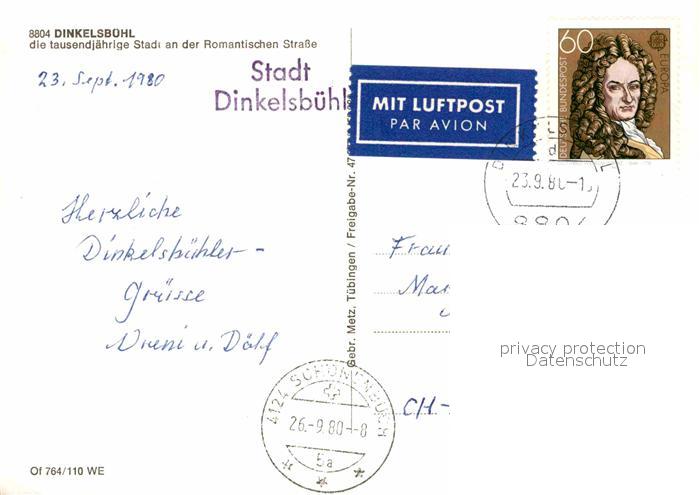 8804 DINKELSBÜHL
die tausendjährige Stadt an der Romantischen Straße
23. Sept. 1980
Stadt
Dinkelsbühl
MIT LUFTPOST
PAR AVION
60
EUROPA
DEUTSCHE BUNDESPOST
23.9.80-1
8804
Herzliche
Dinkelsbühler-
Grüsse
Vreni u. Dölf
Gebr. Metz, Tübingen / Freigabe-Nr. 47
Frau
Mar
CH-
privacy protection
Datenschutz
4124 SCHÖNENBUCH
26.-9.80--8
5a
Of 764/110 WE